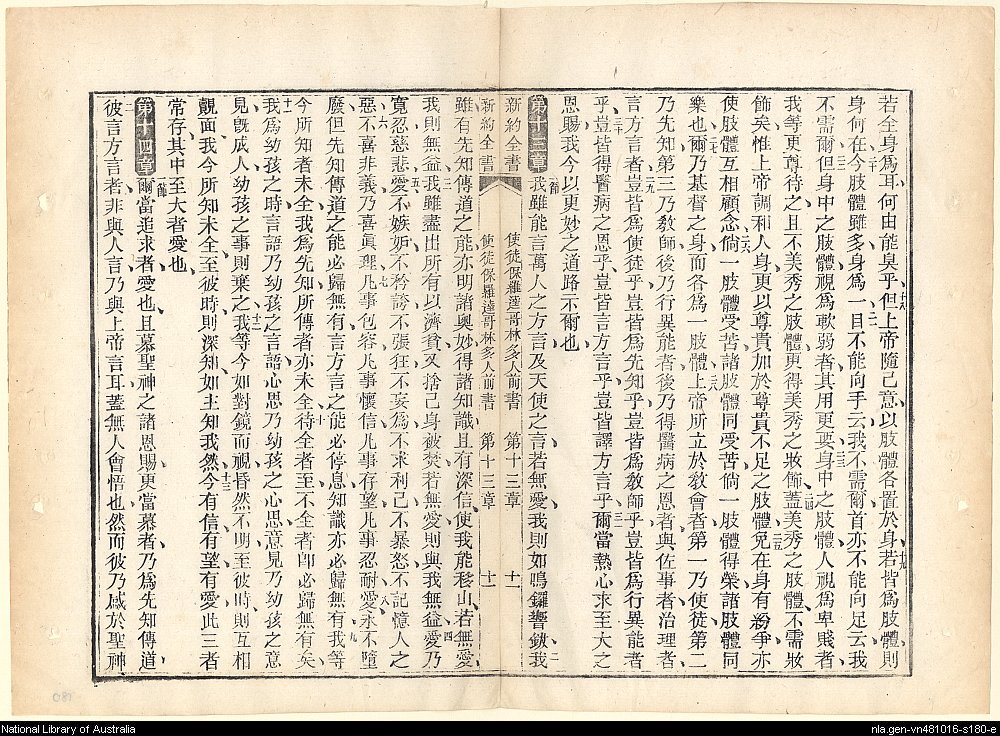 若全身爲耳、何由能臭乎、十八但上帝隨己意、以肢體各置於身、十九若皆爲肢體、則
身何在、二十今肢體雖多、身爲一、二一目不能向手云、我不需爾、首亦不能向足云、我
不需爾、二二但身中之肢體視爲軟弱者、其用更要、二三身中之肢體、人視爲卑賤者、
我等更尊待之、且不美秀之肢體、更得美秀之妝飾、二四蓋美秀之肢體、不需妝
飾矣、惟上帝調和人身、更以尊貴加於尊貴不足之肢體、二五免在身有紛爭、亦
使肢體互相顧念、二六倘一肢體受苦、諸肢體同受苦、倘一肢體得榮、諸肢體同
樂也、二七爾乃基督之身、而各爲一肢體、二八上帝所立於敎會者、第一乃使徒、第二
乃先知、第三乃敎師、後乃行異能者、後乃得醫病之恩者、與佐事者、治理者、
言方言者、二九豈皆爲使徒乎、豈皆爲先知乎、豈皆爲敎師乎、豈皆爲行異能者
乎、三十豈皆得醫病之恩乎、豈皆言方言乎、豈皆譯方言乎、三一爾當熱心求至大之
恩賜、我今以更妙之道路示爾也、
第十三章 一節我雖能言萬人之方言、及天使之言、若無愛、我則如鳴鑼響鈸、二我
新約全書 使徒保羅達哥林多人前書 第十三章 十一
新約全書 使徒保羅達哥林多人前書 第十三章 十一
雖有先知傳道之能、亦明諸奧妙、得諸知識、且有深信、使我能移山、若無愛、
我則無益、三我雖盡出所有以濟貧、又捨己身被焚、若無愛、則與我無益、四愛乃
寬忍慈悲、愛不嫉妬、不矜誇、不張狂、五不妄爲、不求利己、不暴怒、不記憶人之
惡、六不喜非義、乃喜眞理、七凡事包容、凡事懷信、凡事存望、凡事忍耐、八愛永不墮
廢、但先知傳道之能、必歸無有、言方言之能、必停息、知識亦必歸無有、九我等
今所知者未全、我爲先知所傳者亦未全、十待全者至、不全者卽必歸無有矣、
十一我爲幼孩之時、言語乃幼孩之言語、心思乃幼孩之心思、意見乃幼孩之意
見、旣成人、幼孩之事則棄之、十二我等今如對鏡而視、昏然不明、至彼時、則互相
覿面、我今所知未全、至彼時則深知、如主知我然、十三今有信有望有愛、此三者
常存、其中至大者愛也、
第十四章 一節爾當追求者、愛也、且慕聖神之諸恩賜、更當慕者、乃爲先知傳道、
二彼言方言者、非與人言、乃與上帝言耳、蓋無人會悟也、然而彼乃感於聖神
National Library of Australia
nla.gen-vn481016-s180-e